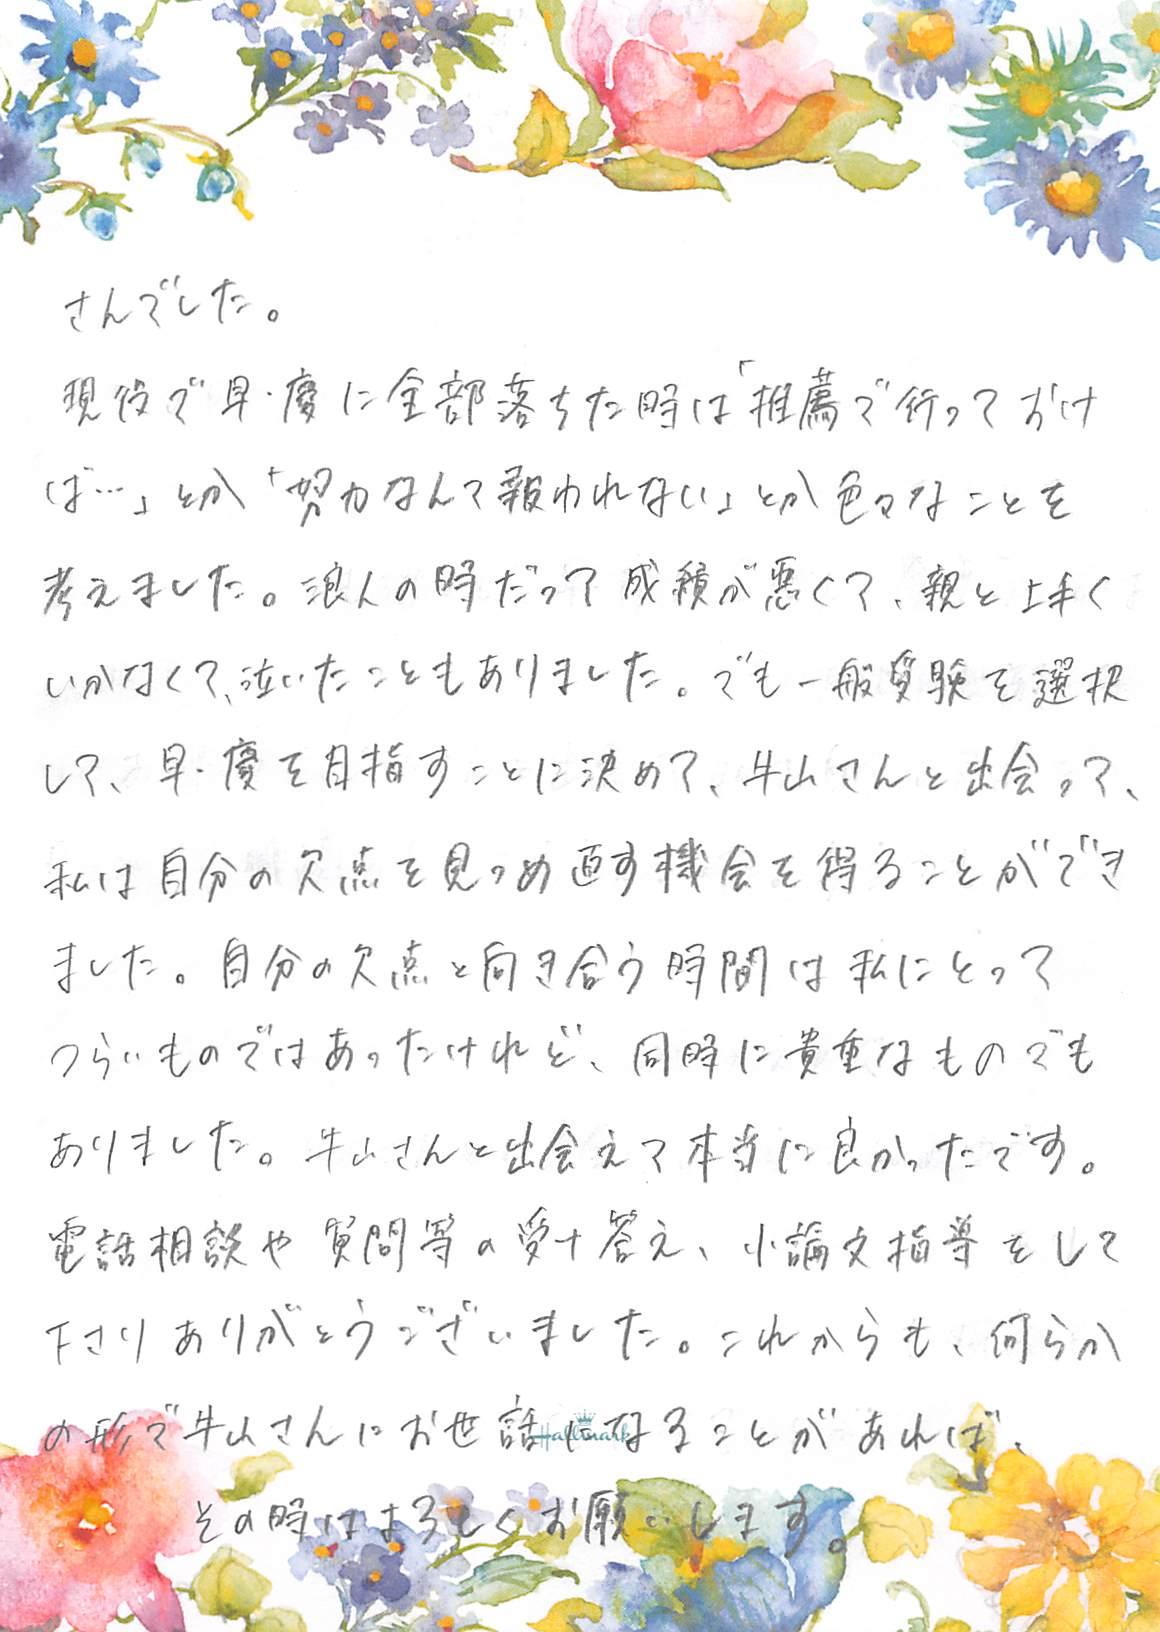 さんでした。
現役で早・慶に全部落ちた時は「推薦で行っておけ
ば…」とか「努力なんて報われない」とか色々なことを
考えました。浪人の時だって成績が悪くて、親と上手く
いかなくて、泣いたこともありました。でも一般受験を選択
して、早・慶を目指すことに決めて、牛山さんと出会って、
私は自分の欠点を見つめ直す機会を得ることができ
ました。自分の欠点と向き合う時間は私にとって
つらいものではあったけれど、同時に貴重なものでも
ありました。牛山さんと出会えて本当に良かったです。
電話相談や質問等の受け答え、小論文指導をして
下さりありがとうございました。これからも、何らか
の形で牛山さんにお世話になることがあれば、
Hallmark
その時はよろしくお願いします。